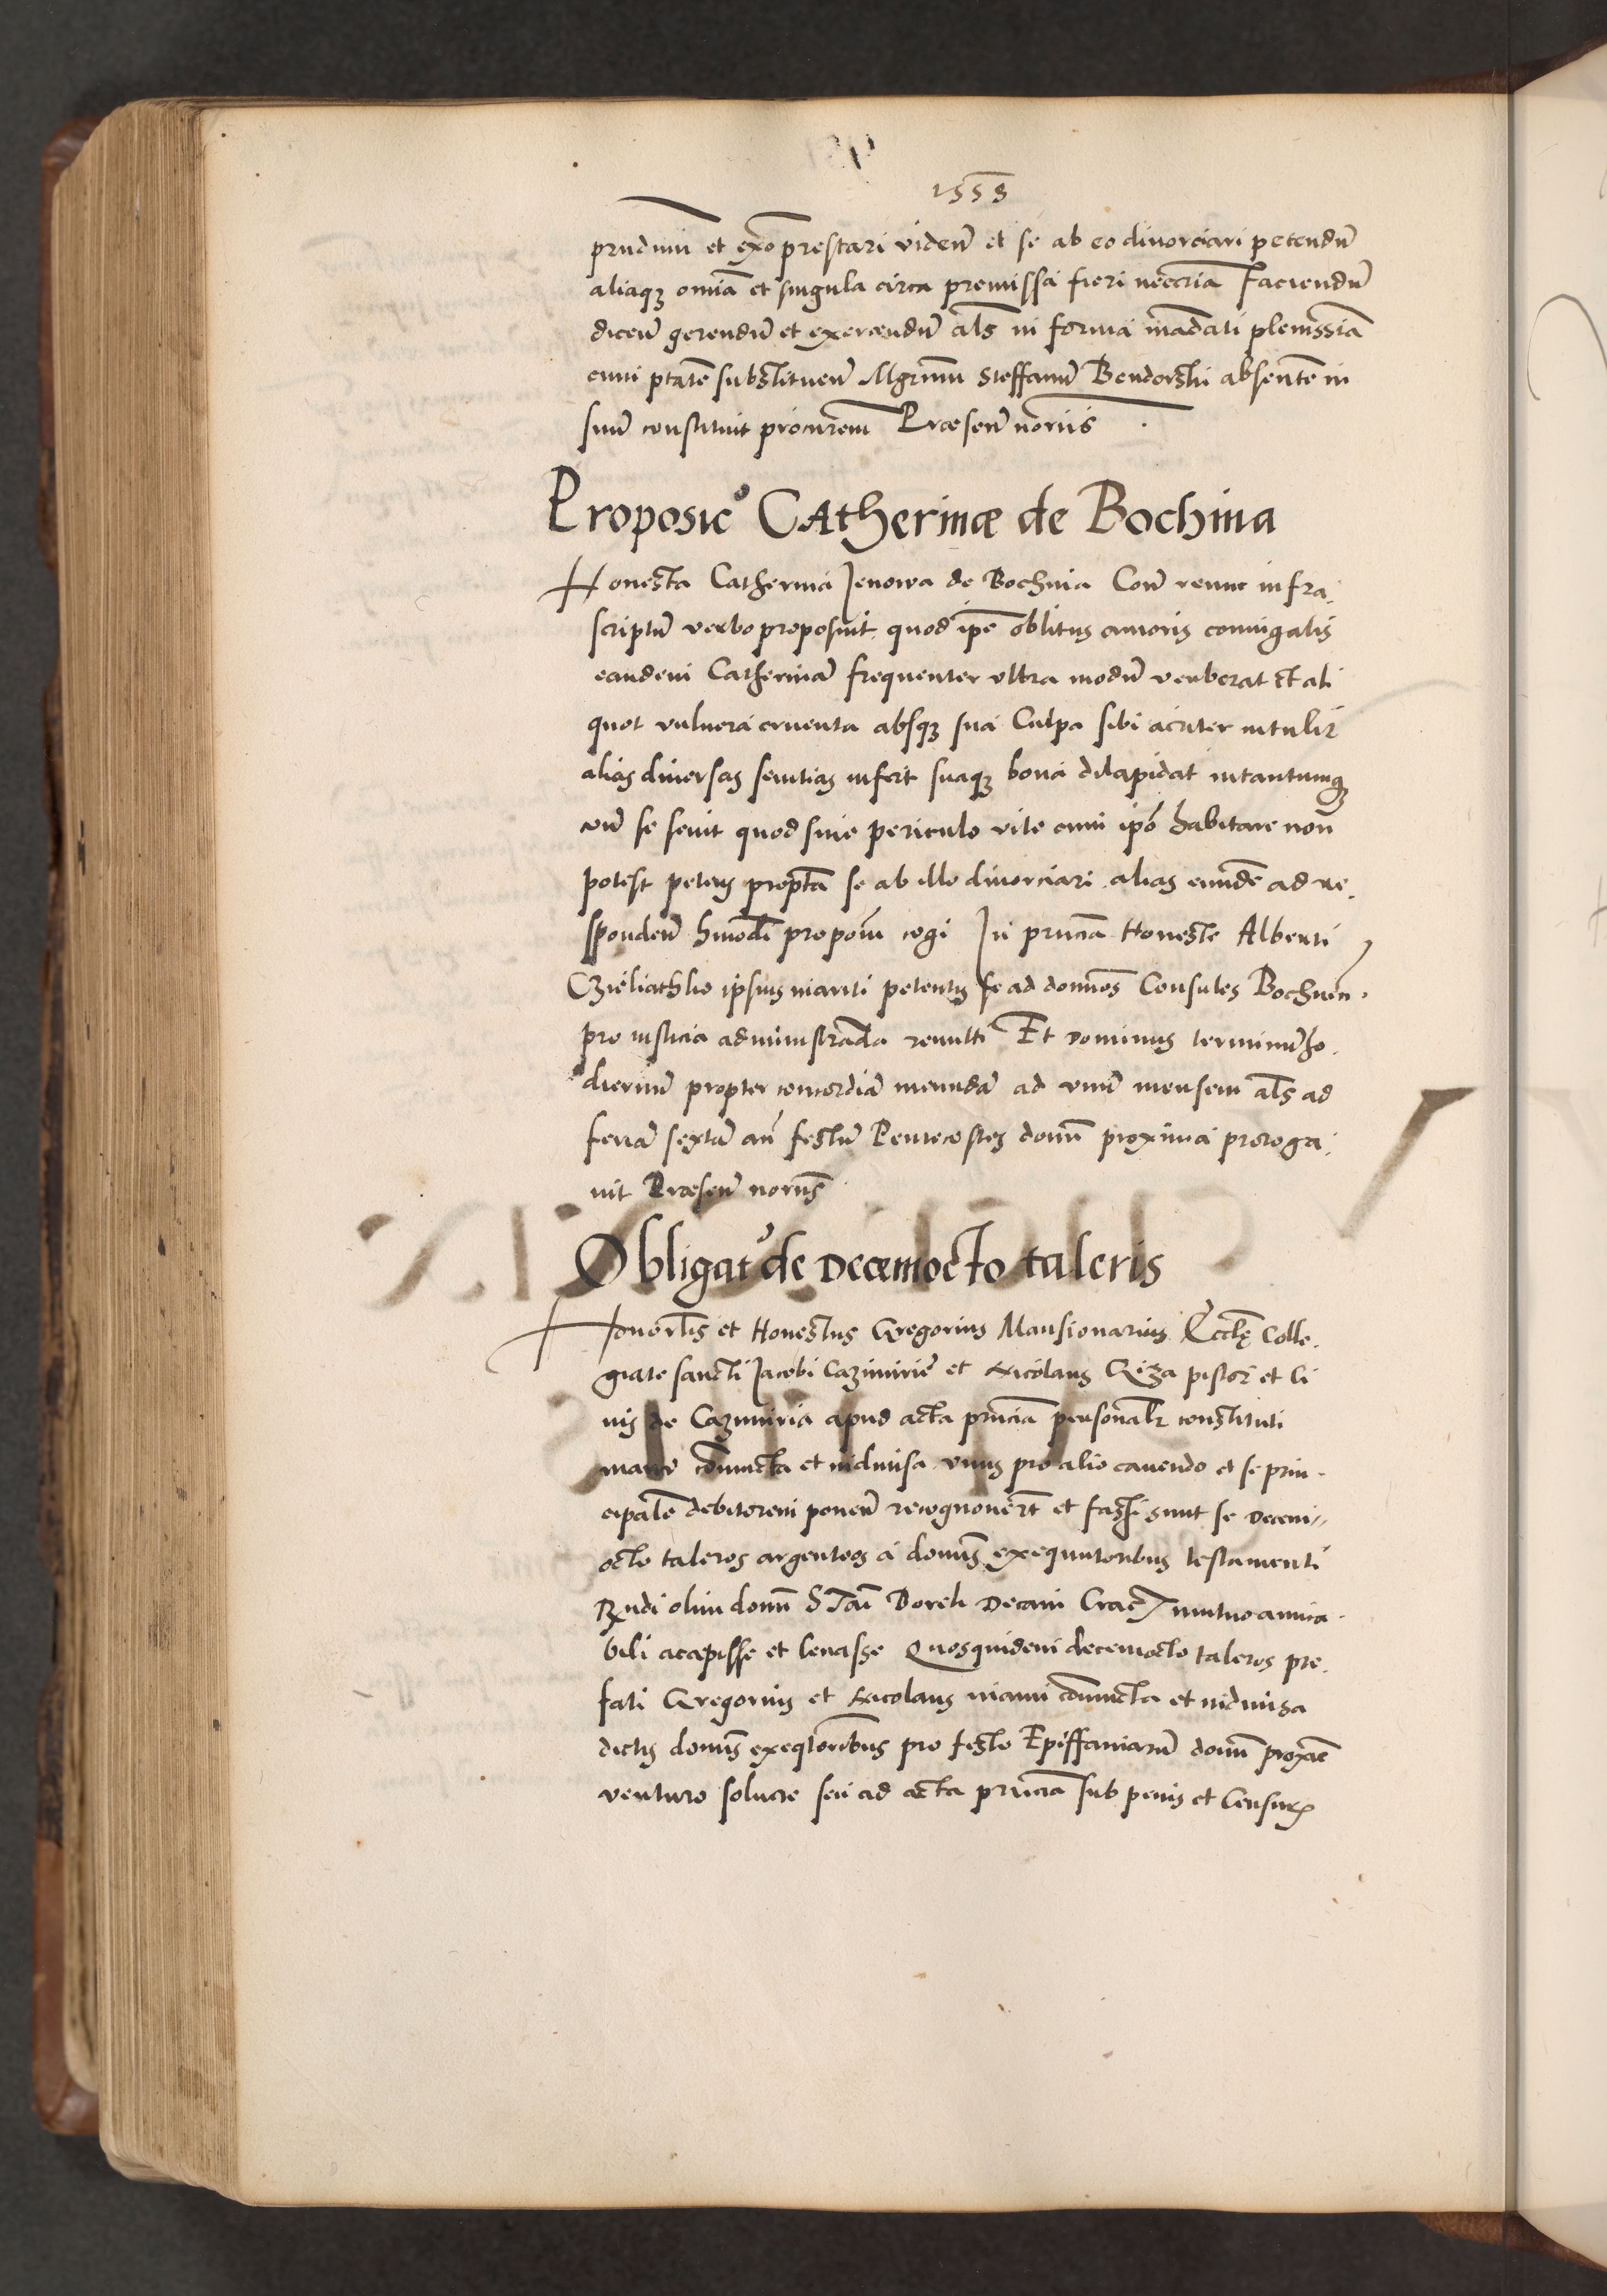 1553
prudum et exo prestari viden̄ et se ab eo divorciari petendū
aliaqꝫ omīa et singula circa premissa fieri neccria Faciendū
dicen̄ gerendū et exercendū als in forma mādati plenissīa
cum ptatē substituen̄ Mgrum Steffanū Bendorski absentē in
suū constituit procurem Præsen̄ noriis
Proposic° Catherinæ de Bochnia
Honesta Catherina Jenowa de Bochnia Con̄ reum infra
scriptū verbo proposuit quod ipē oblitus amoris coniugalis
eandem Catherinā frequenter ultra modū verberat et ali
quot vulnera cruenta absqꝫ sua Culpa sibi acriter intulit
alias diversas sevitias infert suaqꝫ bona dilapidat intantumqꝫ
con̄ se sevit quod sine periculo vite cum ipō habitare non
potest petens propta se ab illo divorciari alias eundē ad re
sponden̄ hmōdi propōni cogi In pnciā Honeste Alberti
Czieliathko ipsius mariti petentis se ad domnos Consules Bochnen̄
pro iusticia administrāda remitti Et Dominus terminū ho
diernū propter concordiā ineundā ad unū mensem als ad
feriā sextā an̄ festū Pentecostes domī proxima proroga
vit Præsen̄ noriis
Obligat° de Decemocto taleris
Honorlis et Honestus Gregorius Mansionarius Ecclę Colle
giate sancti Jacobi Cazimiriē et Nicolaus Giza pistor et Ci
vis de Cazimiria apud acta pnciā personalr constituti
manu coniuncta et indivisa unus pro alio cavendo et se prin
cipalē debitorem ponen̄ recognoverūt et fassi sunt se Decem
octo taleros argenteos a domis exequutoribus testamenti
Rndi olim domī Stai Borek Decani Crac mutuo amica
bili accepisse et levasse Quosquidem decemocto taleros pre
fati Gregorius et Nicolaus manu coniuncta et indivisa
dictis domis exeqtoribus pro festo Epiffaniarū domī proxie
venturo solvere seu ad acta pnciā sub penis et Censuris